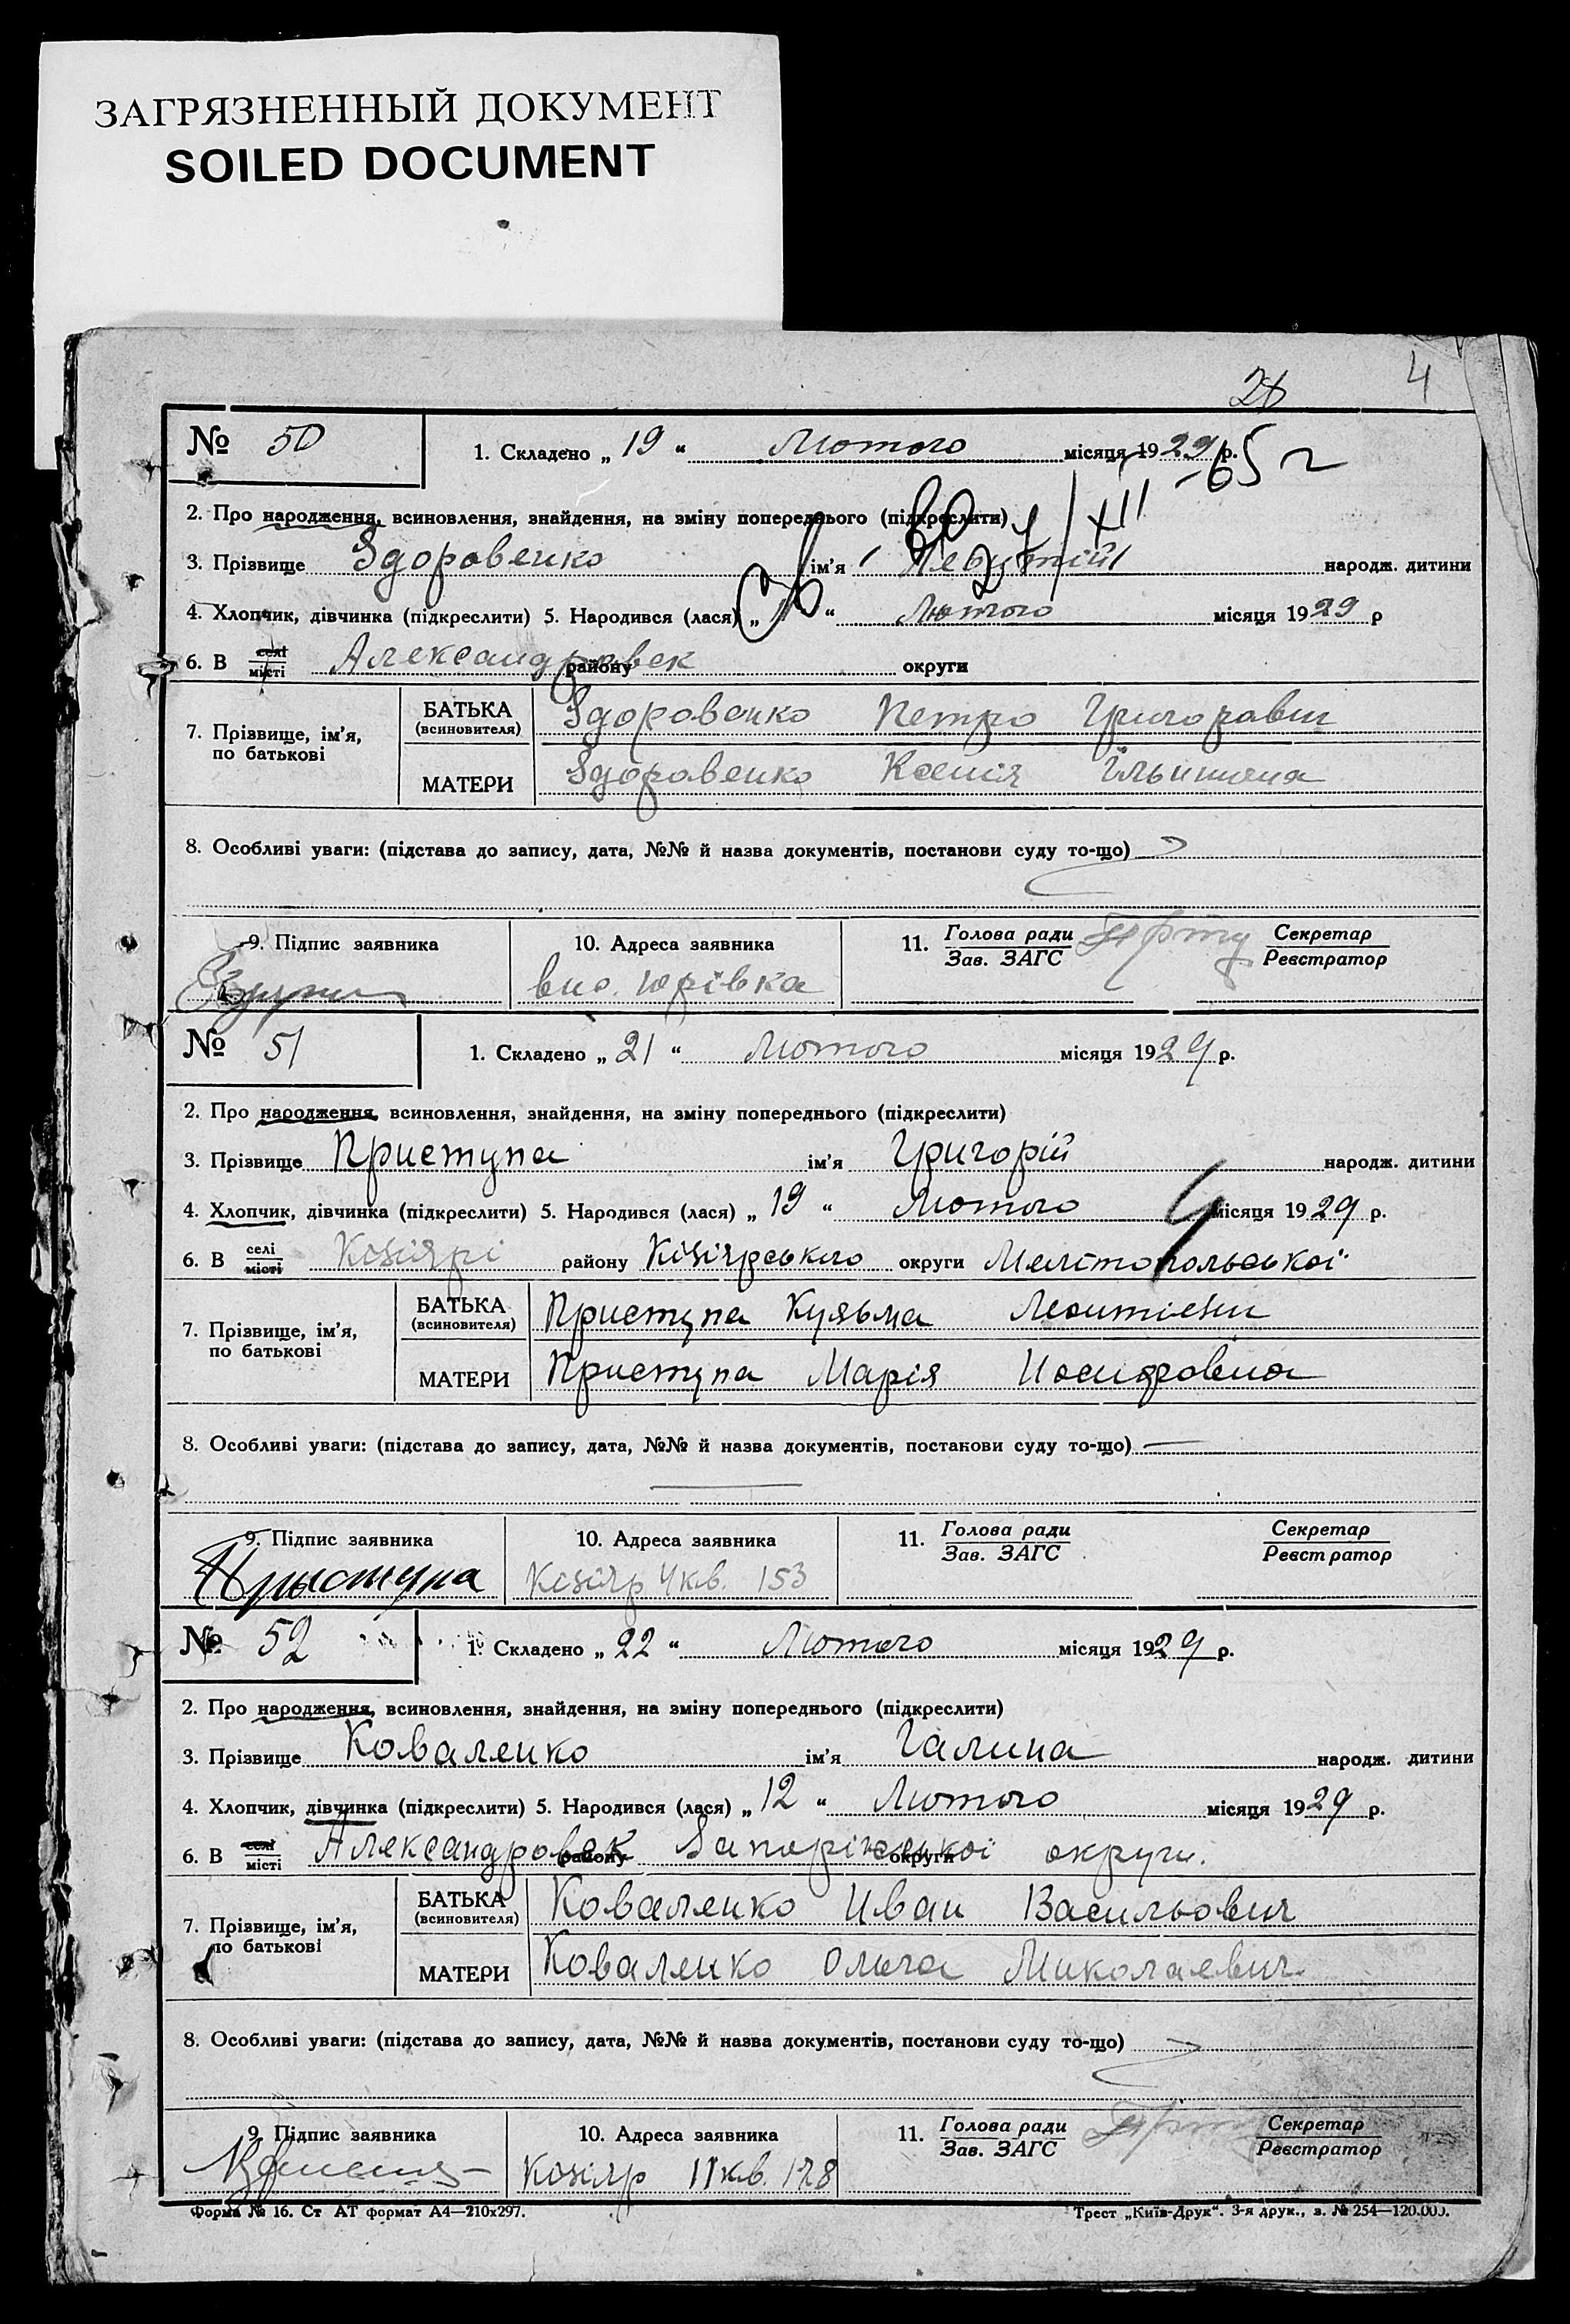 ЗАГРЯЗНЕННЫЙ ДОКУМЕНТ
SOILED DOCUMENT
4
№ 50 1. Складено „ 19 “ Лютого місяця 1929 р.
65 г
2. Про народження, всиновлення, знайдення, на зміну попереднього (підкреслити)
3. Прізвище Здоровенко ім'я народж. дитини
4. Хлопчик, дівчинка (підкреслити) 5. Народився (лася) „ “ Лютого місяця 1929 р
6. В селі місті Александровск району округи
7. Прізвище, ім'я, по батькові БАТЬКА (всиновителя) Здоровенко Петро Григоравич
МАТЕРИ Здоровенко Ксенія Ільинична
8. Особливі уваги: (підстава до запису, дата, №№ й назва документів, постанови суду то-що)
9. Підпис заявника 10. Адреса заявника 11. Голова ради Зав. ЗАГС Секретар Реєстратор
Юрівка
№ 51 1. Складено „ 21 “ Лютого місяця 1929 р.
2. Про народження, всиновлення, знайдення, на зміну попереднього (підкреслити)
3. Прізвище Приступа ім'я Григорій народж. дитини
4. Хлопчик, дівчинка (підкреслити) 5. Народився (лася) „ 19 “ Лютого місяця 1929 р.
6. В селі місті Кізіярі району Кізіярського округи Мелітопольської
7. Прізвище, ім'я, по батькові БАТЬКА (всиновителя) Приступа Кузьма
МАТЕРИ Приступа Марія Иосифовна
8. Особливі уваги: (підстава до запису, дата, №№ й назва документів, постанови суду то-що)
9. Підпис заявника 10. Адреса заявника 11. Голова ради Зав. ЗАГС Секретар Реєстратор
Прыступа Кізіяр 4 кв. 153
№ 52 1. Складено „ 22 “ Лютого місяця 1929 р.
2. Про народження, всиновлення, знайдення, на зміну попереднього (підкреслити)
3. Прізвище Коваленко ім'я Галина народж. дитини
4. Хлопчик, дівчинка (підкреслити) 5. Народився (лася) „ 12 “ Лютого місяця 1929 р.
6. В селі місті Александровск району Запоріжської округи округи.
7. Прізвище, ім'я, по батькові БАТЬКА (всиновителя) Коваленко Иван Васильович
МАТЕРИ Коваленко Ольга Миколаевич
8. Особливі уваги: (підстава до запису, дата, №№ й назва документів, постанови суду то-що)
9. Підпис заявника 10. Адреса заявника 11. Голова ради Зав. ЗАГС Секретар Реєстратор
Кізіяр 11 кв. 178
Форма № 16. Ст АТ формат А4—210х297. Трест „Київ-Друк“. 3-я друк., з. № 254—120.000.